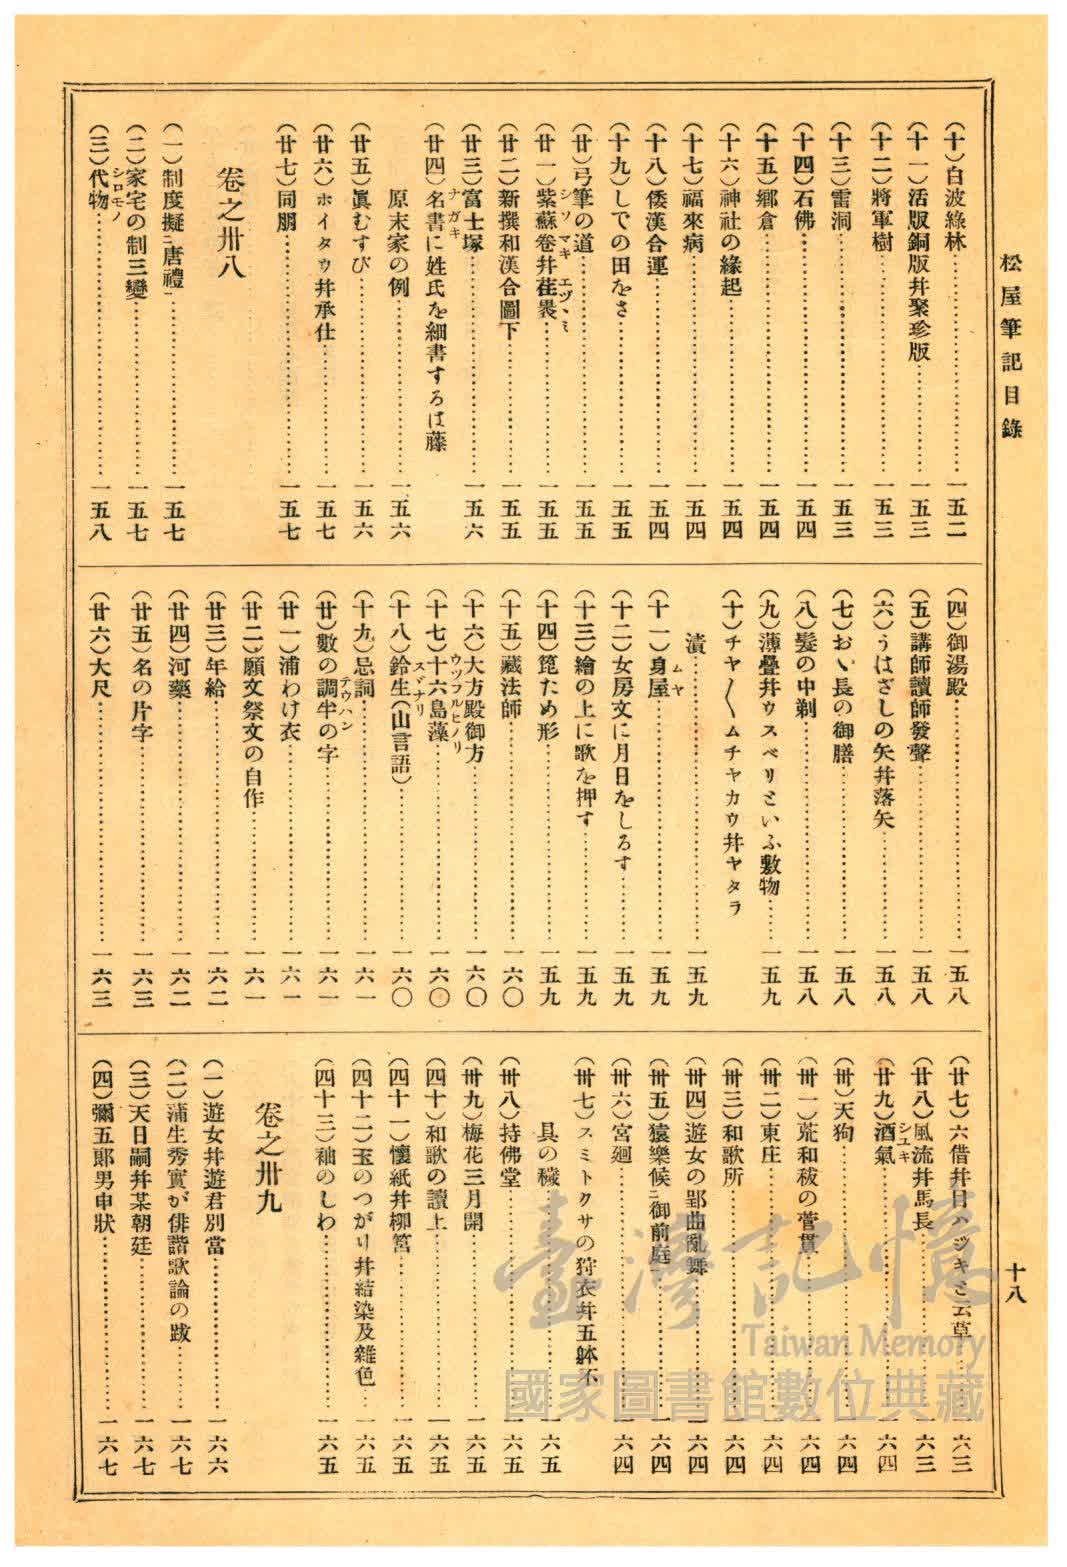 松屋筆記目錄
十八
(十)白波綠林…………一五二
(十一)活版銅版幷聚珍版…………一五三
(十二)將軍樹…………一五三
(十三)雷洞…………一五三
(十四)石佛…………一五四
(十五)鄉倉…………一五四
(十六)神社の緣起…………一五四
(十七)福來病…………一五四
(十八)倭漢合運…………一五四
(十九)しでの田をさ…………一五五
(廿)弓筆の道…………一五五
(廿一)紫蘇卷幷荏裹…………一五五
シソマキ エヅヽミ
(廿二)新撰和漢合圖下…………一五五
(廿三)富士塚…………一五六
(廿四)名書に姓氏を細書するは藤
ナガキ
原末家の例…………一五六
(廿五)眞むすび…………一五六
(廿六)ホイタウ幷承仕…………一五七
(廿七)同朋…………一五七
卷之卅八
(一)制度擬ニ唐禮一…………一五七
(二)家宅の制三變…………一五七
(三)代物…………一五八
シロモノ
(四)御湯殿…………一五八
(五)講師讀師發聲…………一五八
(六)うはざしの矢幷落矢…………一五八
(七)おゝ長の御膳…………一五八
(八)髮の中剃…………一五八
(九)薄疊幷ウスベリといふ敷物…………一五九
(十)チヤ〱ムチヤカウ幷ヤタラ
漬…………一五九
(十一)身屋…………一五九
ムヤ
(十二)女房文に月日をしるす…………一五九
(十三)繪の上に歌を押す…………一五九
(十四)箆ため形…………一五九
(十五)藏法師…………一六〇
(十六)大方殿御方…………一六〇
(十七)十六島藻…………一六〇
ウツフルヒノリ
(十八)鈴生(山言語)…………一六〇
スヾナリ
(十九)忌詞…………一六一
(廿)數の調半の字…………一六一
テウハン
(廿一)浦わけ衣…………一六一
(廿二)願文祭文の自作…………一六一
(廿三)年給…………一六二
(廿四)河藥…………一六二
(廿五)名の片字…………一六三
(廿六)大尺…………一六三
(廿七)六借幷目ハジキと云草…………一六三
(廿八)風流幷馬長…………一六三
(廿九)酒氣…………一六四
シユキ
(卅)天狗…………一六四
(卅一)荒和祓の菅貫…………一六四
(卅二)東庄…………一六四
(卅三)和歌所…………一六四
(卅四)遊女の郢曲亂舞…………一六四
(卅五)猿樂候ニ御前庭一…………一六四
(卅六)宮廻…………一六四
(卅七)スミトクサの狩衣幷五躰不
具の穢…………一六五
(卅八)持佛堂…………一六五
(卅九)梅花三月開…………一六五
(四十)和歌の讀上…………一六五
(四十一)懷紙幷柳筥…………一六五
(四十二)玉のつがり幷結染及雜色…………一六五
(四十三)袖のしわ…………一六五
卷之卅九
(一)遊女幷遊君別當…………一六六
(二)蒲生秀實が俳諧歌論の跋…………一六七
(三)天日嗣幷某朝廷…………一六七
(四)彌五郞男申狀…………一六七
臺灣記憶
Taiwan Memory
國家圖書館數位典藏